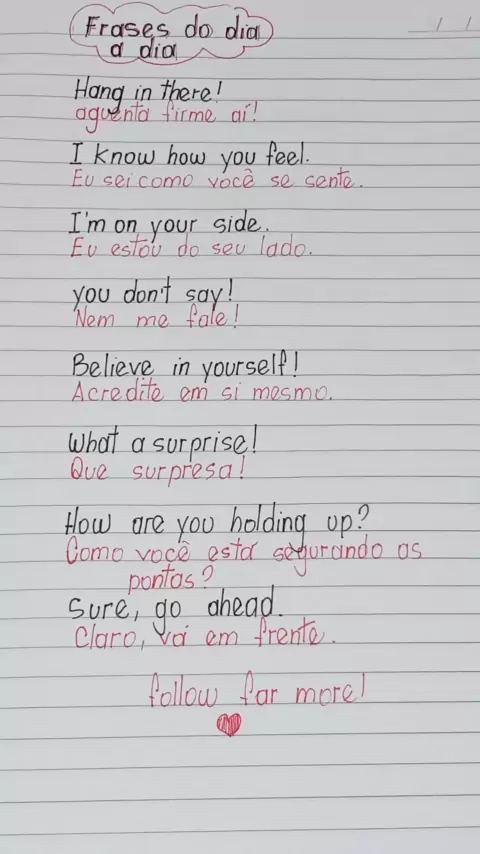 Frases do dia
a dia
Hang in there!
aguenta firme aí!
I know how you feel.
Eu sei como você se sente.
I'm on your side.
Eu estou do seu lado.
you don't say!
Nem me fale!
Believe in yourself!
Acredite em si mesmo.
What a surprise!
Que surpresa!
How are you holding up?
Como você está segurando as
pontas?
Sure, go ahead.
Claro, vá em frente.
follow far more!